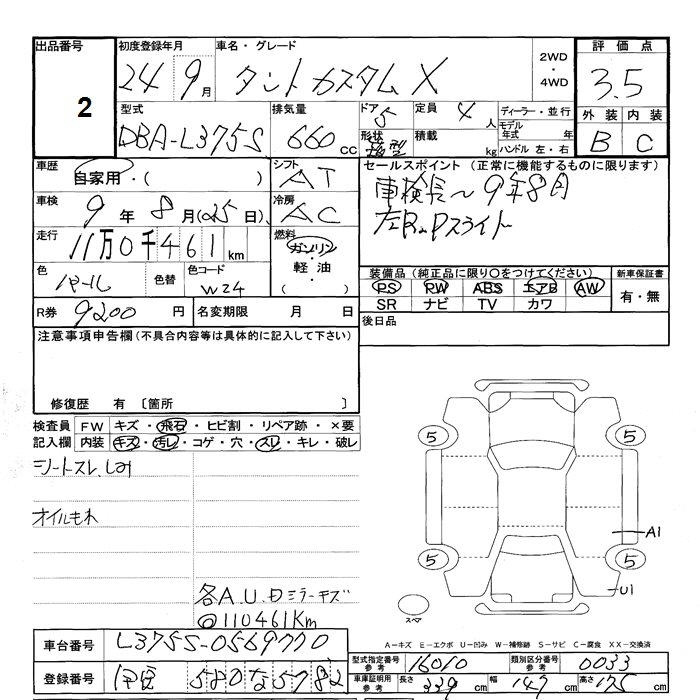 出品番号 2
初度登録年月 24 9月
車名・グレード タントカスタム X
2WD ・ 4WD
評価点 3.5
外装 内装
B C
型式 DBA-L375S
排気量 660 cc
ドア 5
形状 箱型
定員 4 人
積載 kg
ディーラー・並行
モデル年式 年
ハンドル 左・右
車歴 自家用・( )
シフト AT
セールスポイント (正常に機能するものに限ります)
車検長〜9年8月
左R.Pスライド
車検 9年 8月(25日)
冷房 AC
走行 11万0千461 km
燃料 ガソリン・軽油・( )
色 パール
色替
色コード W24
装備品 (純正品に限り○をつけてください)
PS PW ABS エアB AW
SR ナビ TV カワ
新車保証書 有・無
R券 9200 円
名変期限 月 日
後日品
注意事項申告欄(不具合内容等は具体的に記入して下さい)
修復歴 有 〔箇所 〕
検査員記入欄
FW キズ・飛石・ヒビ割・リペア跡・×要
内装 キズ・汚レ・コゲ・穴・スレ・キレ・破レ
シートスレ、しみ
オイルもれ
各A.U.
ミラーキズ
◎110461Km
5 5
5 5
A1
U1
スペア
A-キズ E-エクボ U-凹み W-補修跡 S-サビ C-腐食 XX-交換済
車台番号 L375S-0569770
登録番号 伊豆 580 な5782
型式指定番号 参考 16010
類別区分番号 参考 0033
車庫証明用 参考 長さ 339 cm 幅 147 cm 高さ 175 cm